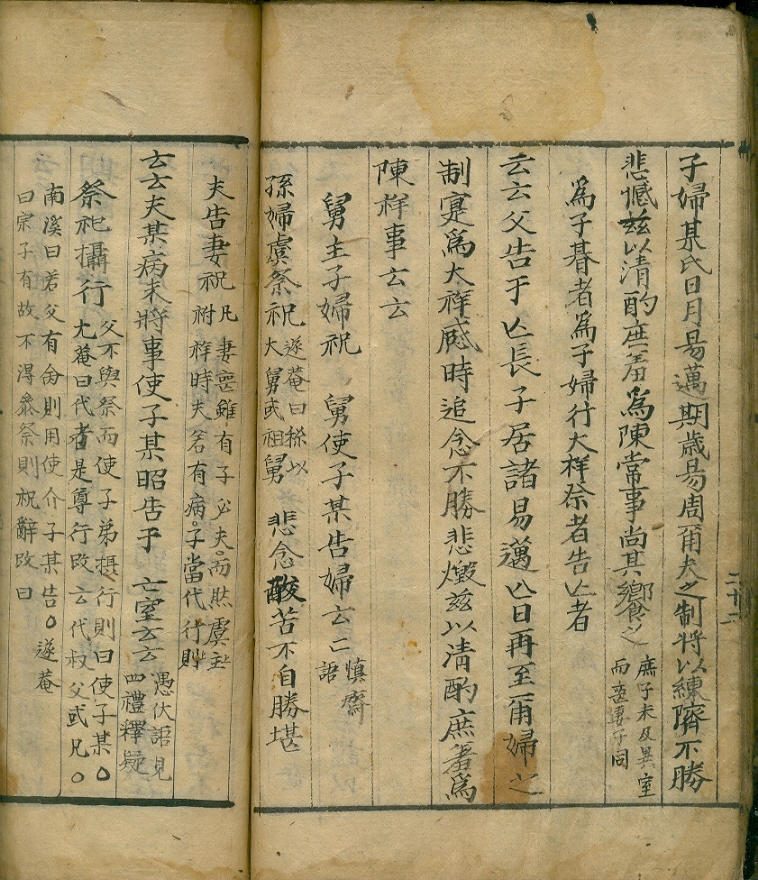 子婦某氏日月易邁期歲易周爾夫之制將以練隮不勝
悲慽玆以清酌庶羞爲陳常事尚其饗之 庶子未及異室
而並妻子同
爲子朞者爲子婦行大祥祭者告亾者
云云父告于亾長子居諸易邁亾日再至爾婦之
制寔爲大祥感時追念不勝悲燬玆以淸酌庶羞爲
陳祥事云云
舅主子婦祝 舅使子某告婦云亡 愼齋
語
孫婦虞祭祝 遂菴曰稱以
大舅或祖舅 悲念酸苦不自勝堪
夫告妻祝 凡妻喪雖有子必夫而然虞主
祔祥時夫若有病子當代行則
云云夫某病未將事使子某昭告于 亡室云云 愚伏語見
四禮釋疑
祭祀攝行 父不與祭而使子弟攝行則曰使子某○
尤菴曰代者是尊行改云代叔父或兄○
南溪曰若父有命則用使介子某告○遂菴
曰宗子有故不得參祭則祝辭改曰
二十二